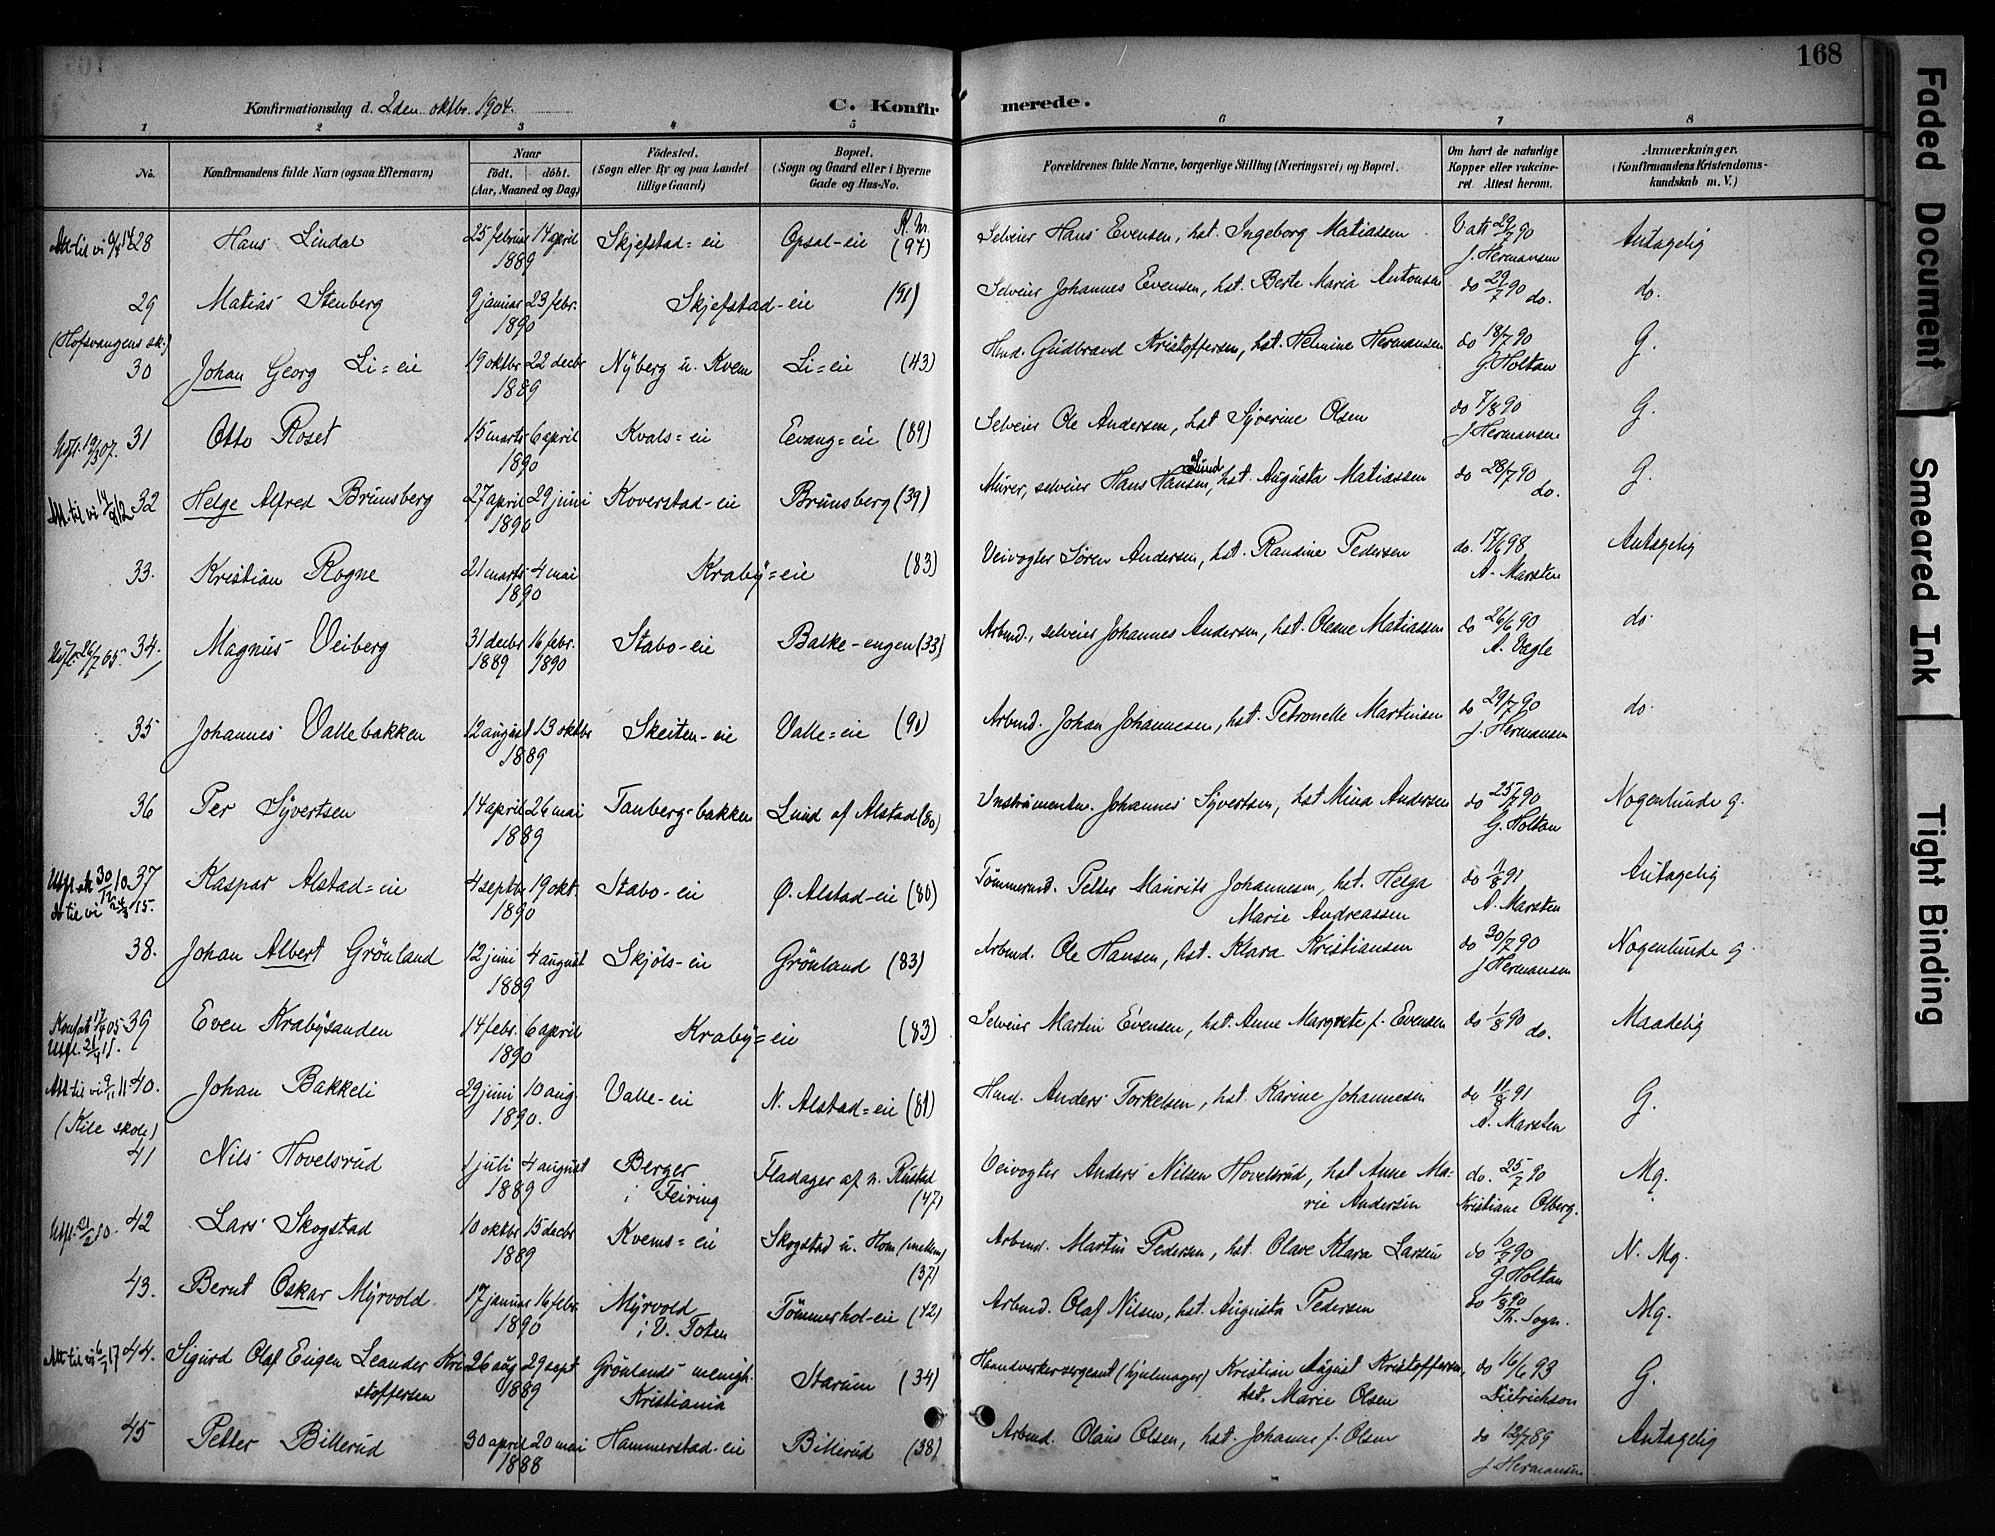 168
Konfirmationsdag d. 2den oktbr. 1904.
C. Konfirmerede.
1 2 3 4 5 6 7 8
No.
Konfirmandens fulde Navn (ogsaa Efternavn)
Naar
födt. döbt.
(Aar, Maaned og Dag)
Födested.
(Sogn eller By og paa Landet
tillige Gaard)
Bopæl.
(Sogn og Gaard eller i Byerne
Gade og Hus-No.
Forældrenes fulde Navne, borgerlige Stilling (Næringsvei) og Bopæl.
Om havt de naturlige
Kopper eller vakcineret. Attest herom.
Anmærkninger.
(Konfirmandens Kristendomskundskab m. V.)
28 Hans Lindal 25 februar 1889 14 april Skjefstad=eie Opsal-eie (97) Selveier Hans Evensen, hst. Ingeborg Matiassen Vatt 29/7 90 J. Hermansen Antagelig
29 Matias Stenberg 9 januar 1890 23 febr. Skjefstad-eie (91) Selveier Johannes Evensen, hst. Berte Maria Antonsen do 29/7 90 do. do.
(Hofsvangens sk.)
30 Johan Georg Li=eie 19 oktbr 1889 22 decbr Nyberg u. Kvem Li=eie (43) Hmd. Gudbrand Kristoffersen, hst. Helmine Hermansen do 18/7 90 G. Holtan G.
Utfl. 19/3 07. 31 Otto Roset 15 marts 1890 6 april Kvals=eie Eevang=eie (89) Selveier Ole Andersen, hst Syverine Olsen do 7/8 90 J Hermansen G.
32 Helge Alfred Brunsberg 27 april 1890 29 juni Koverstad-eie Brunsberg (39) Murer, selveier Hans Hansen Lund, hst. Augusta Matiassen do 28/7 90 do. G.
33. Kristian Rogne 21 marts 1890 4 mai Kraby=eie (83) Veivogter Søren Andersen, hst. Randine Pedersen do. 17/6 98 A. Marsten Antagelig
Utfl. 26/7 05. 34. Magnus Veiberg 31 decbr 1889 16 febr. 1890 Stabo-eie Balke-engen (33) Arbmd., selveier Johannes Andersen, hst. Oleane Matiassen do 26/6 90 A. Vægle do.
35 Johannes Vallebakken 12 august 1889 13 oktbr Skeiten-eie Valle=eie (91) Arbmd. Johan Johannesen, hst. Petronelle Martinsen do 29/7 90 J. Hermansen do.
36 Per Syvertsen 14 april 1889 26 mai Tanberg-bakken Lund af Alstad (80) Instrumentm. Johannes Syvertsen, hst Mina Andersen do 25/7 90 G. Holtan Nogenlunde g.
37 Kaspar Alstad=eie 4 septbr 1890 19 okt. Stabo-eie Ø. Alstad-eie (80) Tømmermd. Petter Maurits Johannesen, hst. Helga Marie Andreassen do 7/8 91 A. Marsten Antagelig
38. Johan Albert Grönland 12 juni 1889 4 august Skjöls-eie Grönland (83) Arbmd. Ole Hansen, hst. Klara Kristiansen do 30/7 90 J Hermansen Nogenlunde g
39 Even Krabysanden 14 febr. 1890 6 april Kraby=eie (83) Selveier Martin Evensen, hst. Anne Margrete f. Evensen do 1/8 90 do. Maadelig
40. Johan Bakkeli 29 juni 1890. 10 aug. Valle-eie N. Alstad=eie (81) Hmd. Anders Torkelsen, hst. Karine Johannesen do 11/8 91 A. Marsten G.
(Kile skole)
41 Nils Hovelsrud 1 juli 1889 4 august Berger i Feiring Fladager af n. Rustad (47) Veivogter Anders Nilsen Hovelsrud, hst Anne Marie Andersen do. 25/7 90 Kristiane Olberg. Mg.
42 Lars Skogstad 10 oktbr 1889 15 decbr Kvems=eie Skogstad u. Hom (mellem) (37) Arbmd. Martin Pedersen, hst. Olave Klara Larsen do 10/7 90 G. Holtan N. Mg.
43. Bernt Oskar Myrvold 17 januar 1890 16 febr. Myrvold i V. Toten Tömmerhol-eie (42) Arbmd. Olaf Nilsen, hst. Augusta Pedersen do 1/8 90 Th. Sogn. Mg.
44. Sigurd Olaf Eugen Leander Kristoffersen 26 aug 1889 29 sept Grönlands menigh. Kristiania Starum (34) Haandverkersergeant (hjulmager) Kristian August Kristoffersen, hst. Marie Olsen do 16/6 93 Dietrichson G.
45 Petter Billerud 30 april 1888 20 mai Hammerstad-eie Billerud (38) Arbmd. Olaus Olsen, hst. Johanne f. Olsen do 12/7 89 J. Hermansen Antagelig
Faded Document
Smeared Ink
Tight Binding